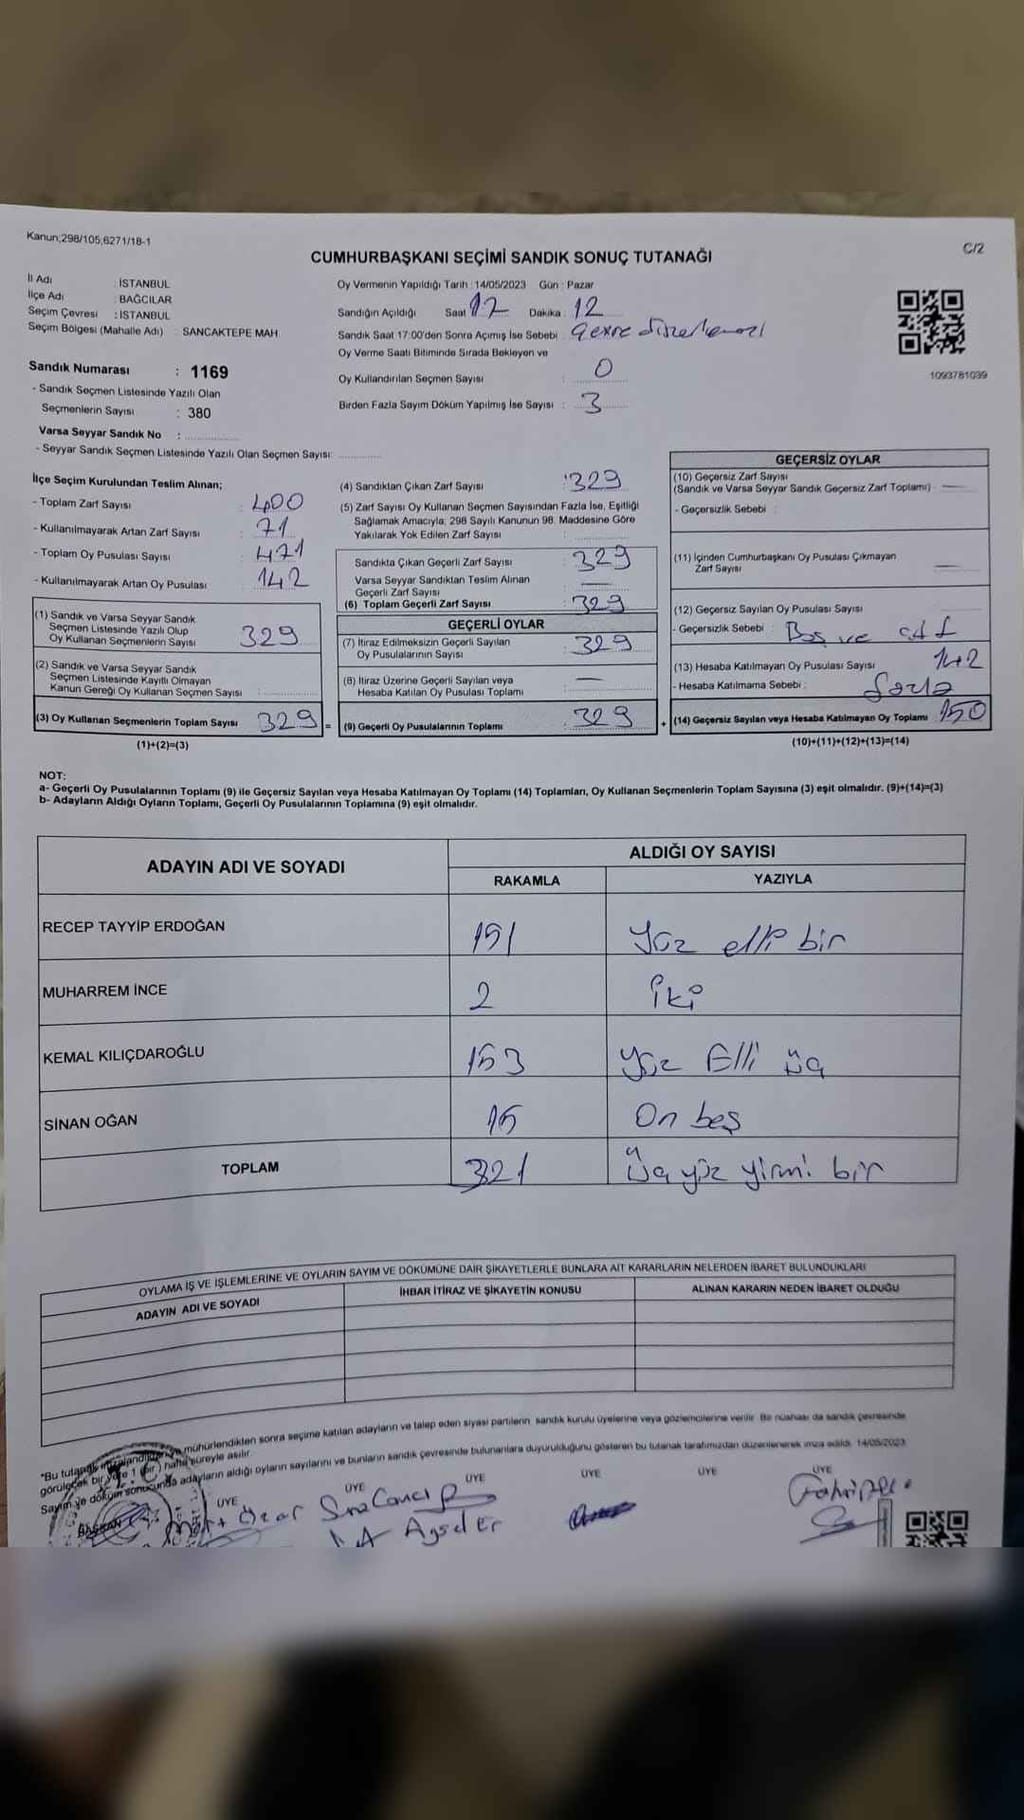 Kanun;298/105,6271/18-1
C/2
CUMHURBAŞKANI SEÇİMİ SANDIK SONUÇ TUTANAĞI
İl Adı : İSTANBUL
İlçe Adı : BAĞCILAR
Seçim Çevresi : İSTANBUL
Seçim Bölgesi (Mahalle Adı) : SANCAKTEPE MAH.
Sandık Numarası : 1169
- Sandık Seçmen Listesinde Yazılı Olan
Seçmenlerin Sayısı : 380
Varsa Seyyar Sandık No :
- Seyyar Sandık Seçmen Listesinde Yazılı Olan Seçmen Sayısı:
Oy Vermenin Yapıldığı Tarih : 14/05/2023 Gün : Pazar
Sandığın Açıldığı Saat 17 Dakika : 12
Sandık Saat 17:00'den Sonra Açılmış İse Sebebi :
Oy Verme Saati Bitiminde Sırada Bekleyen ve
Oy Kullandırılan Seçmen Sayısı : 0
Birden Fazla Sayım Döküm Yapılmış İse Sayısı : 3
1093781039
İlçe Seçim Kurulundan Teslim Alınan;
- Toplam Zarf Sayısı : 400
- Kullanılmayarak Artan Zarf Sayısı : 71
- Toplam Oy Pusulası Sayısı : 471
- Kullanılmayarak Artan Oy Pusulası : 142
(1) Sandık ve Varsa Seyyar Sandık
Seçmen Listesinde Yazılı Olup
Oy Kullanan Seçmenlerin Sayısı : 329
(2) Sandık ve Varsa Seyyar Sandık
Seçmen Listesinde Kayıtlı Olmayan
Kanun Gereği Oy Kullanan Seçmen Sayısı :
(3) Oy Kullanan Seçmenlerin Toplam Sayısı : 329
(1)+(2)=(3)
(4) Sandıktan Çıkan Zarf Sayısı : 329
(5) Zarf Sayısı Oy Kullanan Seçmen Sayısından Fazla İse, Eşitliği
Sağlamak Amacıyla; 298 Sayılı Kanunun 98. Maddesine Göre
Yakılarak Yok Edilen Zarf Sayısı :
Sandıkta Çıkan Geçerli Zarf Sayısı : 329
Varsa Seyyar Sandıktan Teslim Alınan
Geçerli Zarf Sayısı : —
(6) Toplam Geçerli Zarf Sayısı : 329
GEÇERLİ OYLAR
(7) İtiraz Edilmeksizin Geçerli Sayılan
Oy Pusulalarının Sayısı : 329
(8) İtiraz Üzerine Geçerli Sayılan veya
Hesaba Katılan Oy Pusulası Toplamı : —
(9) Geçerli Oy Pusulalarının Toplamı : 329
GEÇERSİZ OYLAR
(10) Geçersiz Zarf Sayısı
(Sandık ve Varsa Seyyar Sandık Geçersiz Zarf Toplamı) : —
- Geçersizlik Sebebi :
(11) İçinden Cumhurbaşkanı Oy Pusulası Çıkmayan
Zarf Sayısı : —
(12) Geçersiz Sayılan Oy Pusulası Sayısı
- Geçersizlik Sebebi : Boş ve
(13) Hesaba Katılmayan Oy Pusulası Sayısı : 142
- Hesaba Katılmama Sebebi : fazla
(14) Geçersiz Sayılan veya Hesaba Katılmayan Oy Toplamı : 150
(10)+(11)+(12)+(13)=(14)
NOT:
a- Geçerli Oy Pusulalarının Toplamı (9) ile Geçersiz Sayılan veya Hesaba Katılmayan Oy Toplamı (14) Toplamları, Oy Kullanan Seçmenlerin Toplam Sayısına (3) eşit olmalıdır. (9)+(14)=(3)
b- Adayların Aldığı Oyların Toplamı, Geçerli Oy Pusulalarının Toplamına (9) eşit olmalıdır.
ADAYIN ADI VE SOYADI ALDIĞI OY SAYISI
RAKAMLA YAZIYLA
RECEP TAYYİP ERDOĞAN 151 Yüz elli bir
MUHARREM İNCE 2 iki
KEMAL KILIÇDAROĞLU 153 Yüz Elli üç
SİNAN OĞAN 15 On beş
TOPLAM 321 üç yüz yirmi bir
OYLAMA İŞ VE İŞLEMLERİNE VE OYLARIN SAYIM VE DÖKÜMÜNE DAİR ŞİKAYETLERLE BUNLARA AİT KARARLARIN NELERDEN İBARET BULUNDUKLARI
ADAYIN ADI VE SOYADI İHBAR İTİRAZ VE ŞİKAYETİN KONUSU ALINAN KARARIN NEDEN İBARET OLDUĞU
*Bu tutanak mühürlendikten sonra seçime katılan adayların ve talep eden siyasi partilerin sandık kurulu üyelerine veya gözlemcilerine verilir. Bir nüshası da sandık çevresinde
görülecek bir yere 1 (bir) hafta süreyle asılır.
Sayım ve döküm sonucunda adayların aldığı oyların sayılarını ve bunların sandık çevresinde bulunanlara duyurulduğunu gösteren bu tutanak tarafımızdan düzenlenerek imza edildi. 14/05/2023
BAŞKAN ÜYE ÜYE ÜYE ÜYE ÜYE ÜYE
Aysel Er